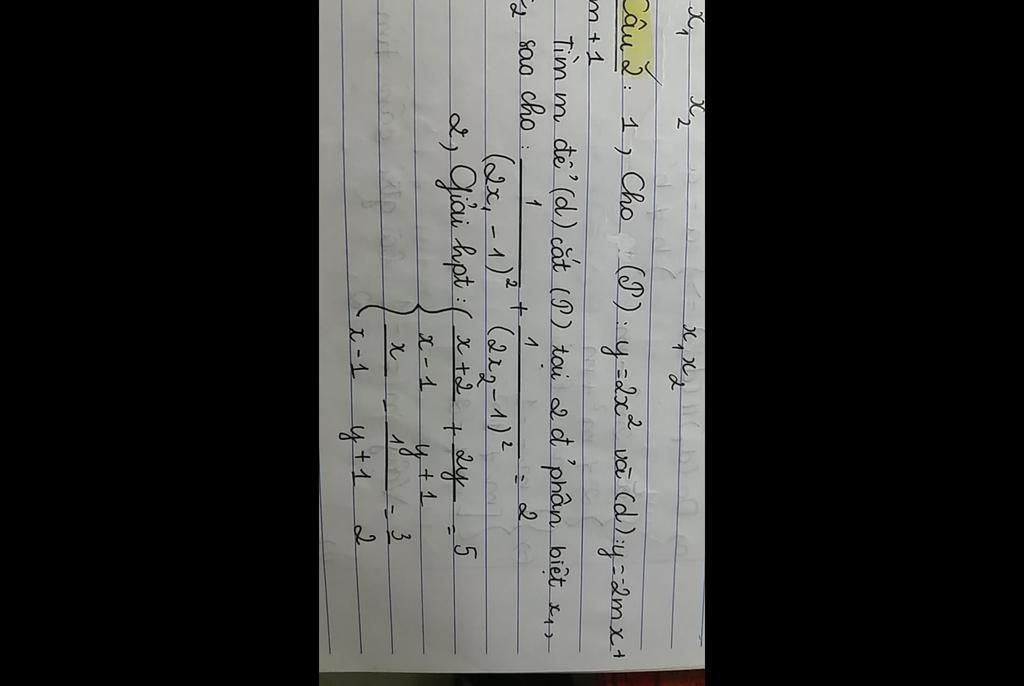 x₁ x₂ x₁x₂
Câu 2: 1, Cho (P): y = 2x² và (d): y = -2mx +
m + 1
Tìm m để (d) cắt (P) tại 2 đ' phân biệt x₁,
x₂ sao cho: 1/(2x₁ - 1)² + 1/(2x₂ - 1)² = 2
2, Giải hpt: { (x + 2)/(x - 1) + 2y/(y + 1) = 5
x/(x - 1) - 1/(y + 1) = 3/2